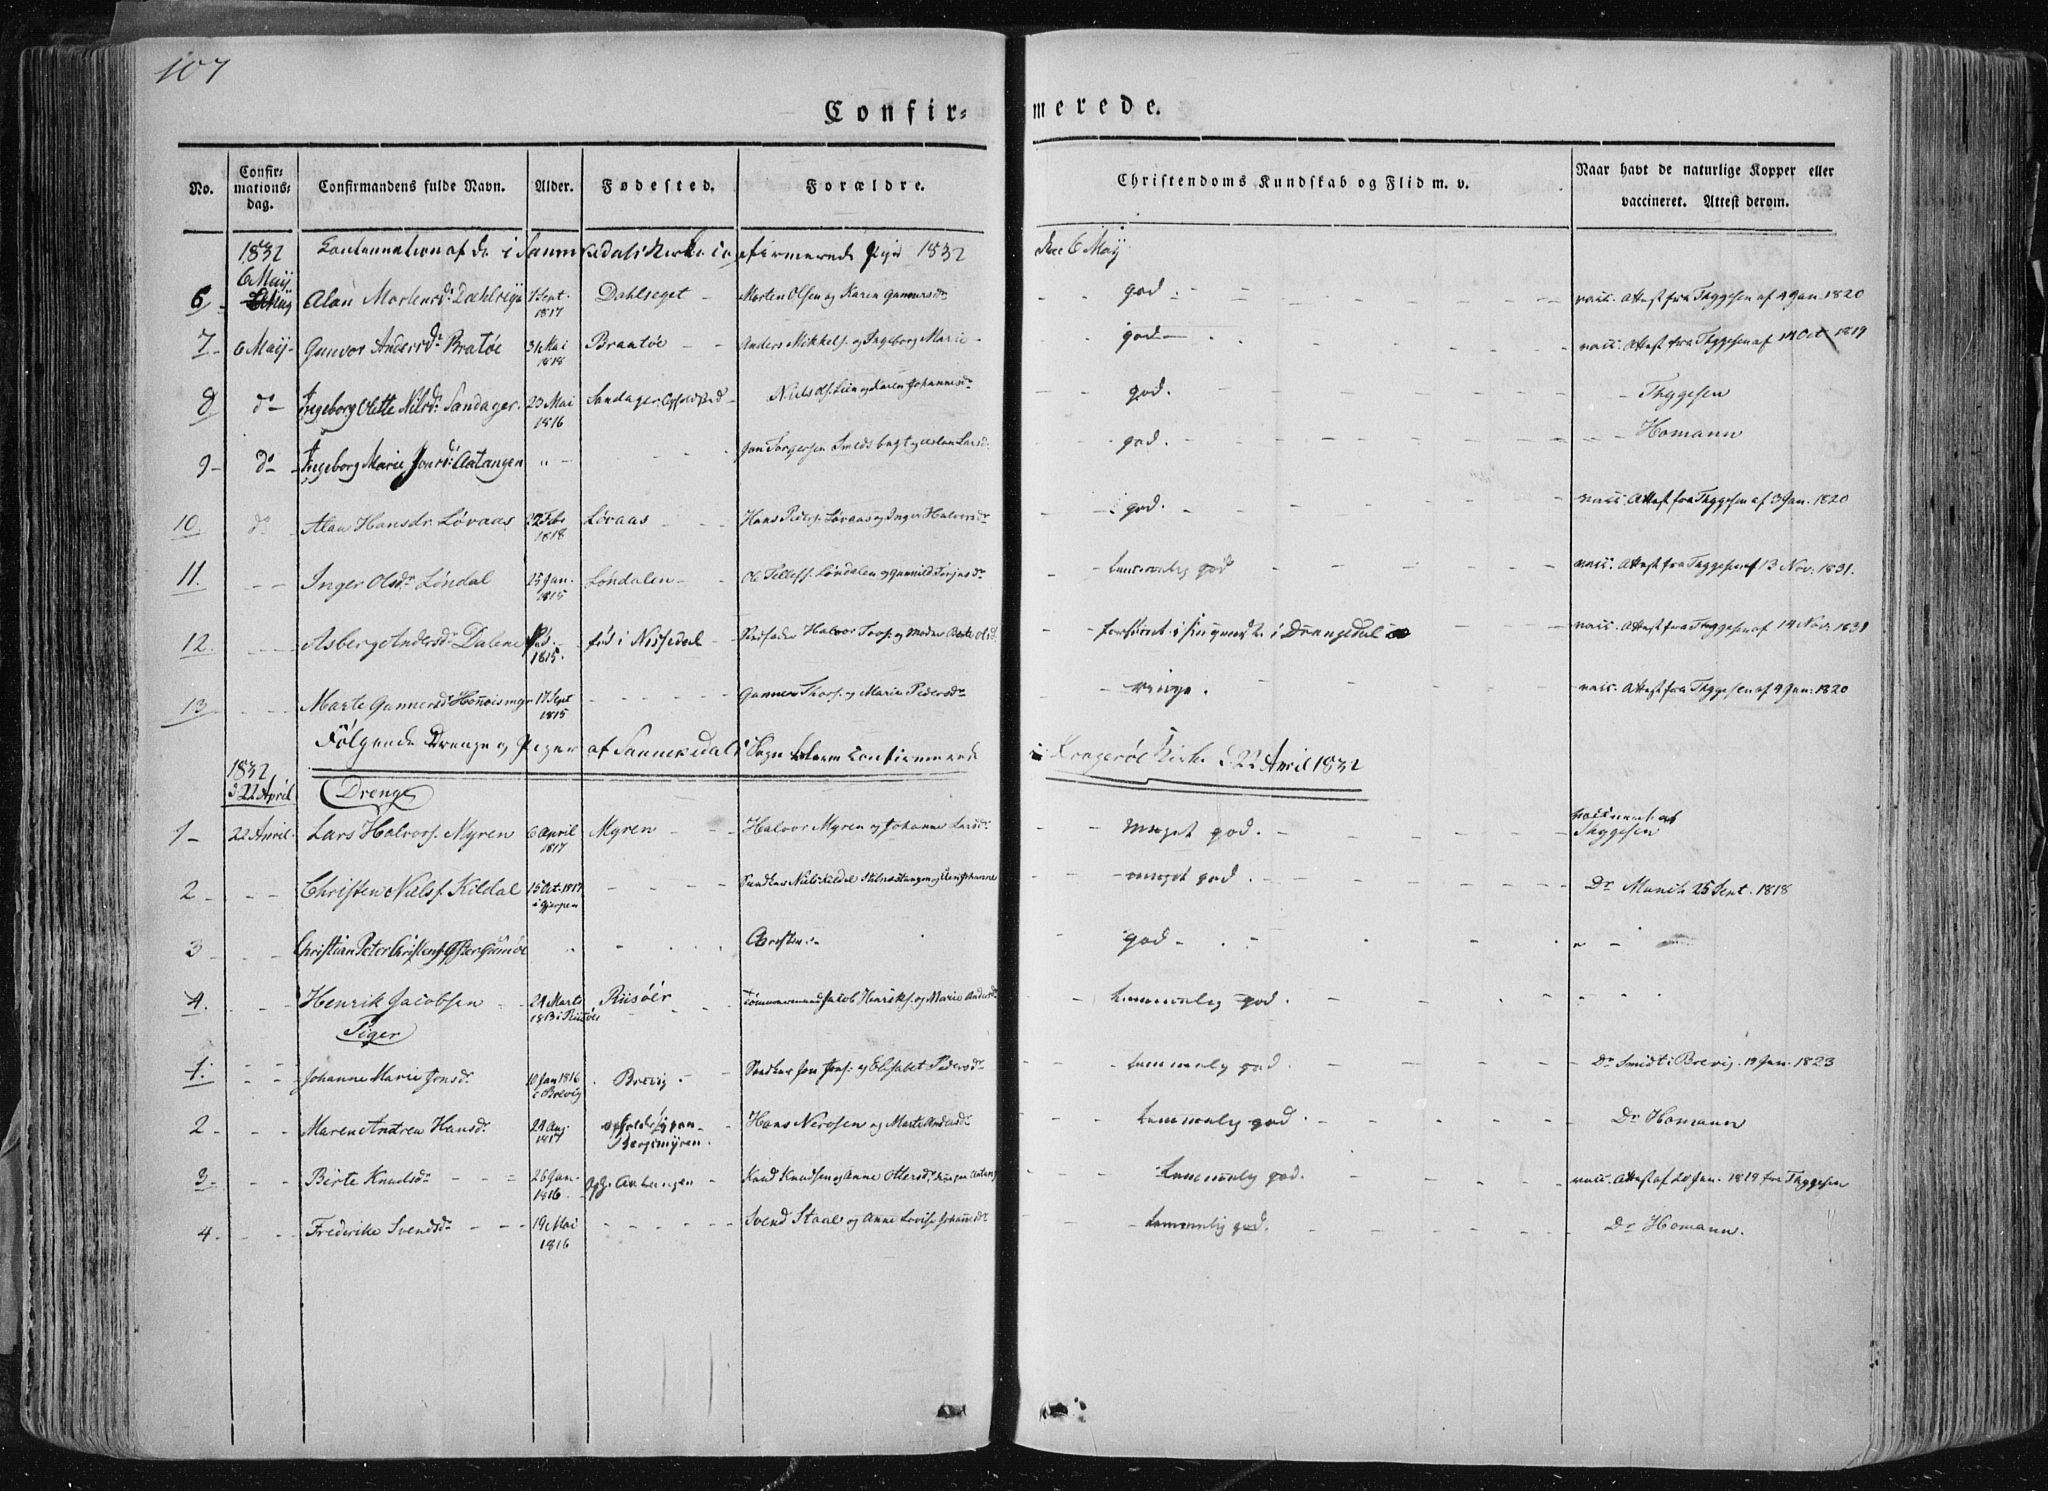 107
Confirmerede.
No.
Confirmationsdag.
Confirmandens fulde Navn.
Alder.
Fødested.
Forældre.
Christendoms Kundskab og Flid m. v.
Naar havt de naturlige Kopper eller vaccineret. Attest derom.
1832 Continuation af de i Sannikedals Kirke confirmerede Piger 1832 den 6 Maij
6 6 Maij Alau Mortensdr. Dahlseget 1 Sept. 1817 Dahlseget Morten Olsen og Karen Gunnersdr. god. vacc. Attest fra Thygesen af 4 Jan. 1820
7 6 Maij Gunvor Andersdr. Bratøe 31 Mai 1818 Braatøe Anders Mikkels. og Ingeborg Marie god vacc. Attest fra Thygesen af 14 Oct 1819
8 do Ingeborg Olette Nilsdr. Sandager. 23 Mai 1816 Sandager Niels Ols. og Karen Johannesdr. god. Thygesen
9 do Ingeborg Marie Jonsdr. Aatangen Jon Torgersen Smedsbugt og Larsd. god. Homann
10. do Alau Hansdr. Løvaas 22 Feb 1818 Løvaas Hans Peders. Løvaas og Inger Halvorsdr god. vacc. Attest fra Thygesen af 3 Jan. 1820
11. Inger Olsdr Løndal 25 Jan. 1815 Løndalen Ole Tellefs. Løndalen og Gunnild Torjusdr temmelig god vacc. Attest fra Thygesen af 13 Nov. 1831.
12. Asberg Andersdr Dalene 1815. fød i Nissedal Halvor Tors. og Moder Berte Olsd. i Drangedal vacc. Attest fra Thygesen af 14 Nov. 1831
13 Marte Gunnersdr 17 Sept 1815 Gunner Thors. og Marie Pedersdr ringe. vacc. Attest fra Thygesen af 4 Jan. 1820
Følgende Drenge og Piger af Sannikedals Sogn bleve confirmerede i Kragerøe Kirke d 22 April 1832
1832 d 22 April Drenge
1 22 April. Lars Halvors. Myren 6 April 1817 Myren Halvor Myren og Johanne Larsdr. meget god. vaccineret af Thygesen
2 Christen Niels. Kildal 15 Oct. 1817 i Gjerpen Niels Kildal og Johanne meget god. Dr Munch 25 Sept. 1818
3 Christian Peter Christens. Christen god
4. Henrik Jacobsen 24 Marts 1813 i Riisøer Riisöer Tømmermand Jacob Henriks. og Marie Andersdr temmelig god.
Piger
1. Johanne Marie Jonsdr. 10 Jan 1816 i Brevig Brevig Jon Jons. og Elisabet Pedersdr temmelig god. Dr Smidt i Brevig. 19 Jan. 1823
2 Maren Andrea Hansdr. 24 Aug. 1817 Bergsmyren. Hans Nersen og Marte Andersdr. temmelig god. Dr Homann
3. Birte Knudsdr 26 Jan. 1816. Aatangen Knud Knudsen og Anne Ottersdr temmelig god. vacc. Attest af 20 Jan. 1819 fra Thygesen
4 Frederike Svendsdr 19 Mai 1816 Svend Staal og Anne Lovise Johannesdr temmelig god. Dr Homann.